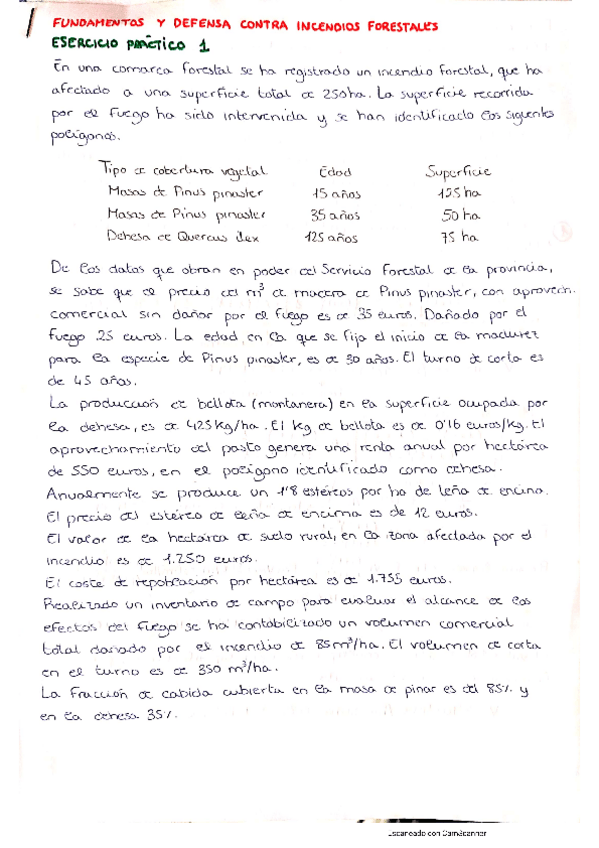 FUNDAMENTOS Y DEFENSA CONTRA INCENDIOS FORESTALES
EJERCICIO PRÁCTICO 1
En una comarca forestal se ha registrado un incendio forestal, que ha
afectado a una superficie total de 250ha. La superficie recorrida
por el fuego ha sido intervenida y se han identificado los siguientes
polígonos.
Tipo de cobertura vegetal Edad Superficie
Masas de Pinus pinaster 15 años 125 ha
Masas de Pinus pinaster 35 años 50 ha
Dehesa de Quercus ilex 125 años 75 ha
De los datos que obran en poder del Servicio Forestal de la provincia,
se sabe que el precio del m³ de madera de Pinus pinaster, con aprovech.
comercial sin dañar por el fuego es de 35 euros. Dañado por el
fuego 25 euros. La edad en la que se fija el inicio de la madurez
para la especie de Pinus pinaster, es de 30 años. El turno de corta es
de 45 años.
La producción de bellota (montanera) en la superficie ocupada por
la dehesa, es de 425 kg/ha. El kg de bellota es de 0'16 euros/kg. El
aprovechamiento del pasto genera una renta anual por hectárea
de 550 euros, en el polígono identificado como dehesa.
Anualmente se produce un 1'8 estéreos por ha de leña de encina.
El precio del estéreo de leña de encina es de 12 euros.
El valor de la hectárea de suelo rural, en la zona afectada por el
incendio es de 1.250 euros.
El coste de repoblación por hectárea es de 1.755 euros.
Realizado un inventario de campo para evaluar el alcance de los
efectos del fuego se ha contabilizado un volumen comercial
total dañado por el incendio de 85m³/ha. El volumen de corta
en el turno es de 350 m³/ha.
La fracción de cabida cubierta en la masa de pinar es del 85% y
en la dehesa 35%.
Escaneado con CamScanner